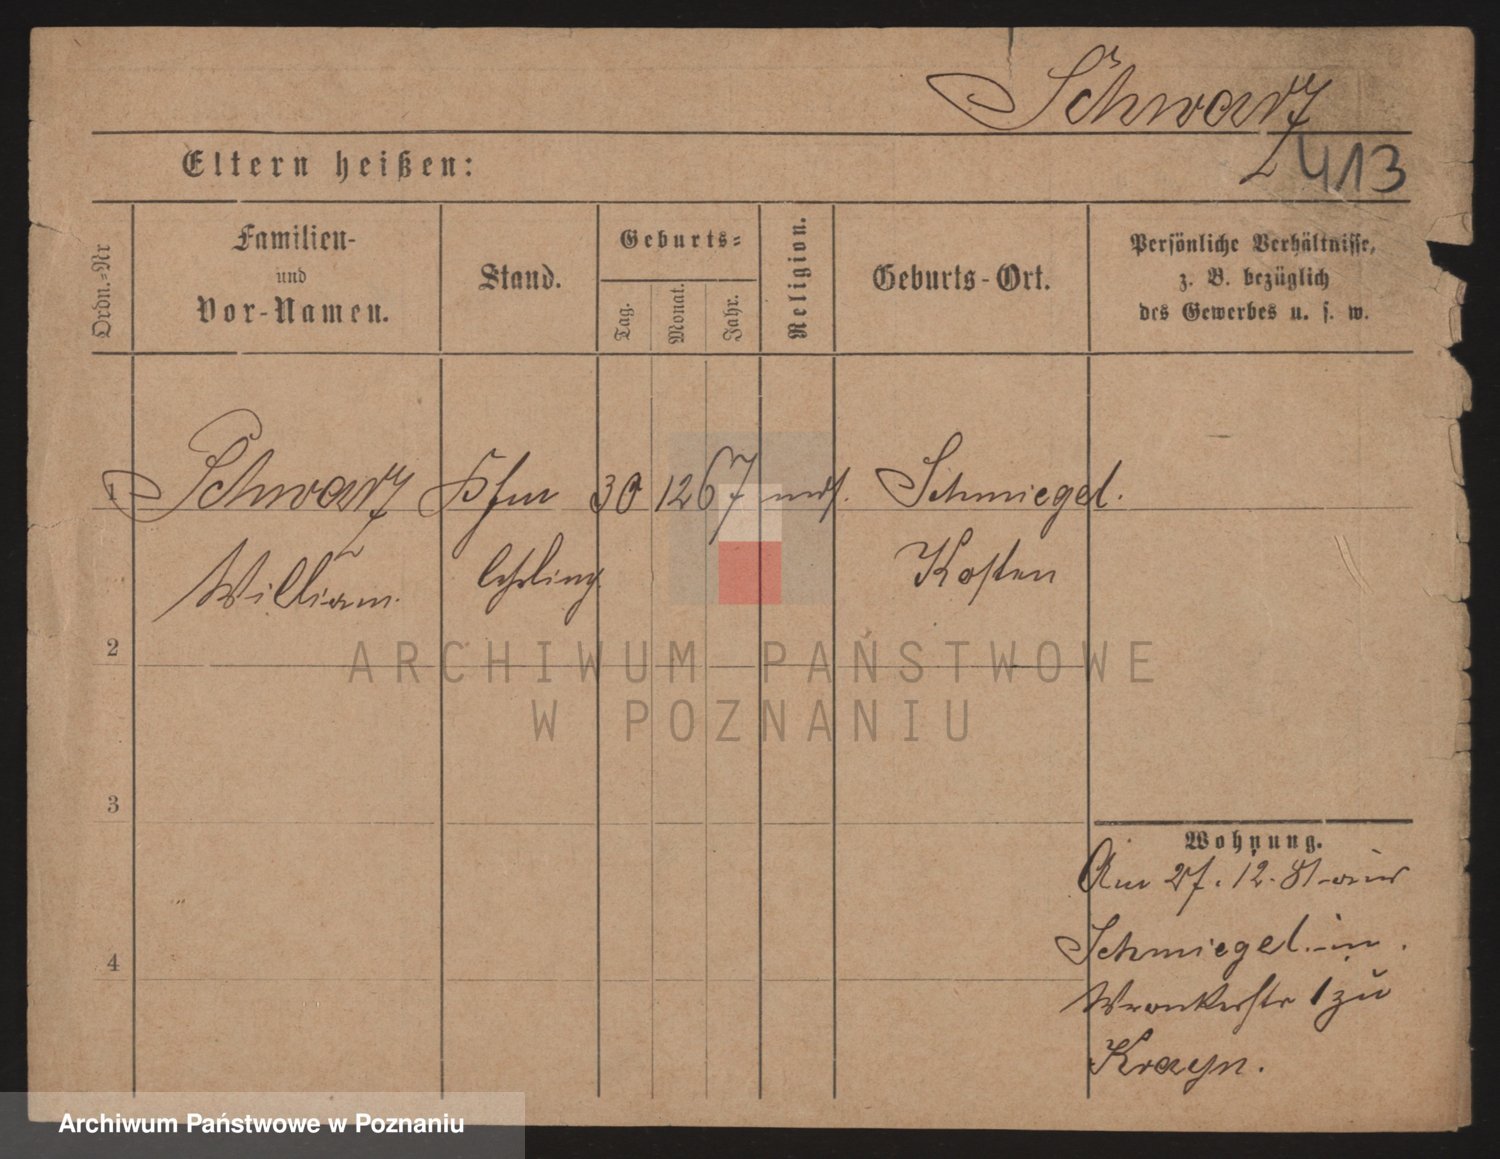 Schwarz
413
Eltern heißen:
Ordn.-Nr
Familien-
und
Vor-Namen.
Stand.
Geburts-
Tag.
Monat.
Jahr.
Religion.
Geburts-Ort.
Persönliche Verhältnisse,
z. B. bezüglich
des Gewerbes u. s. w.
1 Schwarz 30 12 67 Schmiegel.
William. Lehrling Kosten
2
ARCHIWUM PAŃSTWOWE
W POZNANIU
3
Wohnung.
Am 27. 12. 81 aus
Schmiegel. in
Wronkerstr 1 zu
4
Archiwum Państwowe w Poznaniu